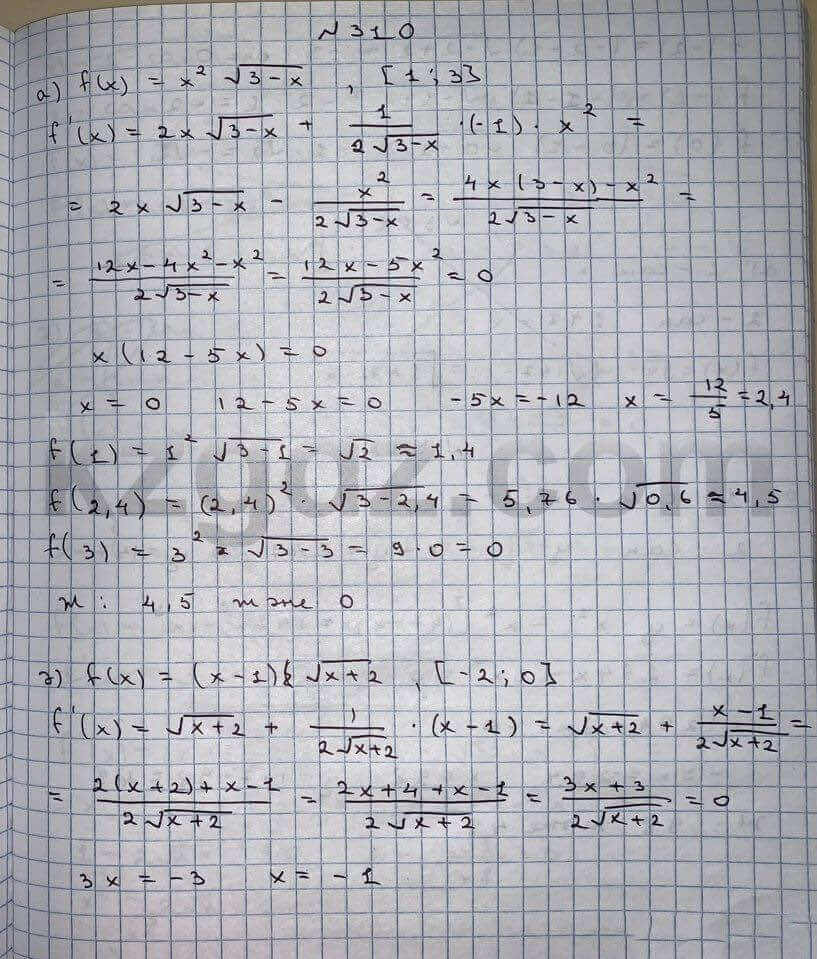 №310
а) f(x) = x² √(3-x) , [1; 3]
f'(x) = 2x √(3-x) + 1/(2√(3-x)) · (-1) · x² =
= 2x √(3-x) - x²/(2√(3-x)) = (4x(3-x) - x²)/(2√(3-x)) =
= (12x - 4x² - x²)/(2√(3-x)) = (12x - 5x²)/(2√(3-x)) = 0
x(12 - 5x) = 0
x = 0 12 - 5x = 0 -5x = -12 x = 12/5 = 2,4
f(1) = 1² √(3-1) = √2 ≈ 1,4
f(2,4) = (2,4)² · √(3-2,4) = 5,76 · √0,6 ≈ 4,5
f(3) = 3² × √(3-3) = 9 · 0 = 0
ж: 4,5 және 0
з) f(x) = (x-1) √(x+2) , [-2; 0]
f'(x) = √(x+2) + 1/(2√(x+2)) · (x-1) = √(x+2) + (x-1)/(2√(x+2)) =
= (2(x+2) + x - 1)/(2√(x+2)) = (2x + 4 + x - 1)/(2√(x+2)) = (3x + 3)/(2√(x+2)) = 0
3x = -3 x = -1